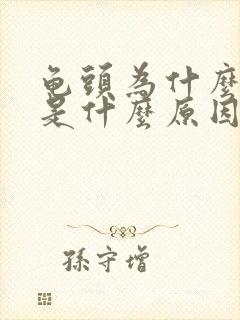 龟頭為什麼
是什麼原因
孫守增